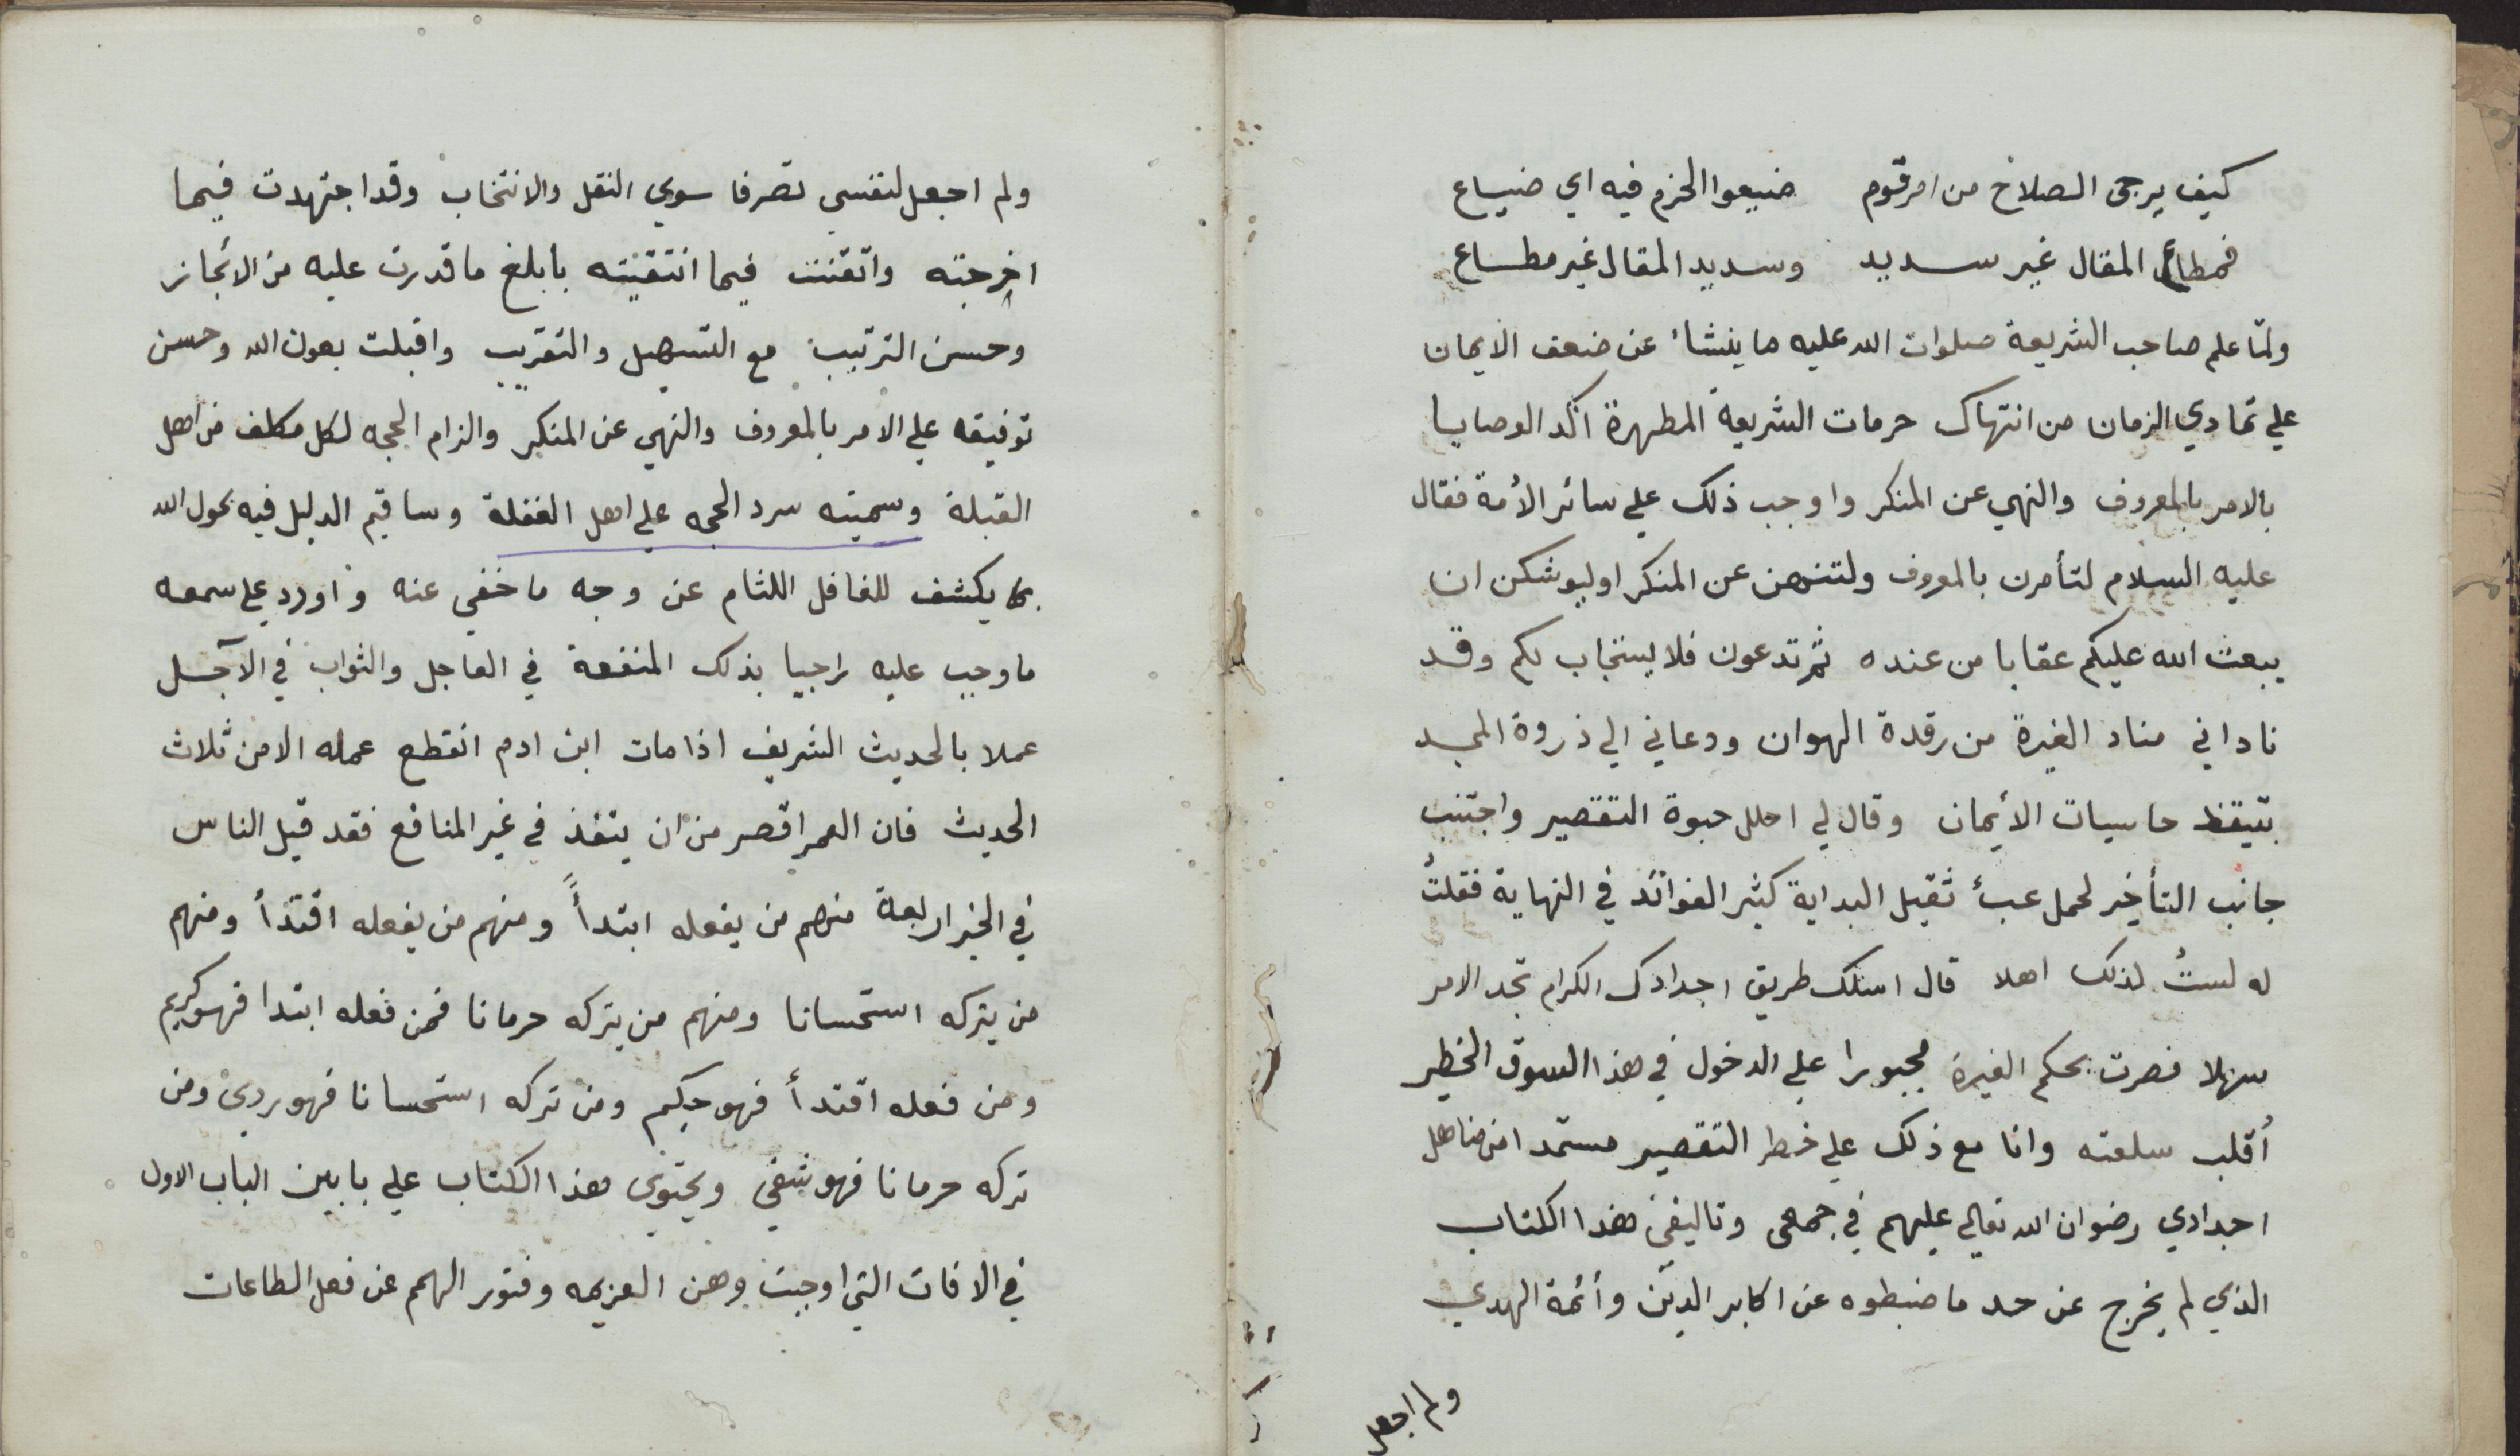 كيف يرجى الصلاح من امر قوم ضيعوا الحزم فيه اي ضياع
فمطاع المقال غير سديد وسديد المقال غير مطاع
ولمّا علم صاحب الشريعة صلوات الله عليه ما ينشاء عن ضعف الايمان
علي تمادي الزمان من انتهاك حرمات الشريعة المطهرة اكد الوصايا
بالامر بالمعروف والنهي عن المنكر واوجب ذلك علي سائر الأمة فقال
عليه السلام لتأمرن بالمعروف ولتنهن عن المنكر اوليوشكن ان
يبعث الله عليكم عقابا من عنده ثم تدعون فلا يستجاب لكم وقد
ناداني مناد الغيرة من رقدة الهوان ودعاني الي ذروة المجد
بتيقظ حاسيات الأيمان وقال لي احلل حبوة التقصير واجتنب
جانب التأخير لحمل عبء ثقيل البداية كثير الفوائد في النهاية فقلتُ
له لستُ لذلك اهلا قال اسلك طريق اجدادك الكرام تجد الامر
سهلا فصرت بحكم الغيرة مجبورا علي الدخول في هذا السوق الخطير
أقلب سلعته وانا مع ذلك علي خطر التقصير مستمدا من مناهل
اجدادي رضوان الله تعالي عليهم في جمعي وتاليفي هذا الكتاب
الذي لم يخرج عن حد ما ضبطوه عن اكابر الدين وأئمة الهدي
ولم اجعل
ولم اجعل لنفسي تصرفا سوي النقل والانتخاب وقد اجتهدت فيما
اخرجته واتقنت فيما انتقيته بابلغ ما قدرت عليه من الائجاز
وحسن الترتيب مع التسهيل والتقريب واقبلت بعون الله وحسن
توفيقه علي الامر بالمعروف والنهي عن المنكر والزام الحجه لكل مكلف من اهل
القبلة وسميته سرد الحجه علي اهل الغفلة وساقيم الدليل فيه بحول الله
بما يكشف للغافل اللثام عن وجه ما خفي عنه واورد علي سمعه
ما وجب عليه راجيا بذلك المنفعة في العاجل والثواب في الآجل
عملا بالحديث الشريف اذا مات ابن ادم انقطع عمله الا من ثلاث
الحديث فان العمر اقصر من ان ينفذ في غير المنافع فقد قيل الناس
في الخير اربعة منهم من يفعله ابتدأً ومنهم من يفعله اقتدأ ومنهم
من يتركه استحسانا ومنهم من يتركه حرمانا فمن فعله ابتدا فهو كريم
ومن فعله اقتدأ فهو حكيم ومن تركه استحسانا فهو ردي ومن
تركه حرمانا فهو شقي ويحتوي هذا الكتاب علي بابين الباب الاول
في الافات التي اوجبت وهن العزيمه وفتور الهمم عن فعل الطاعات